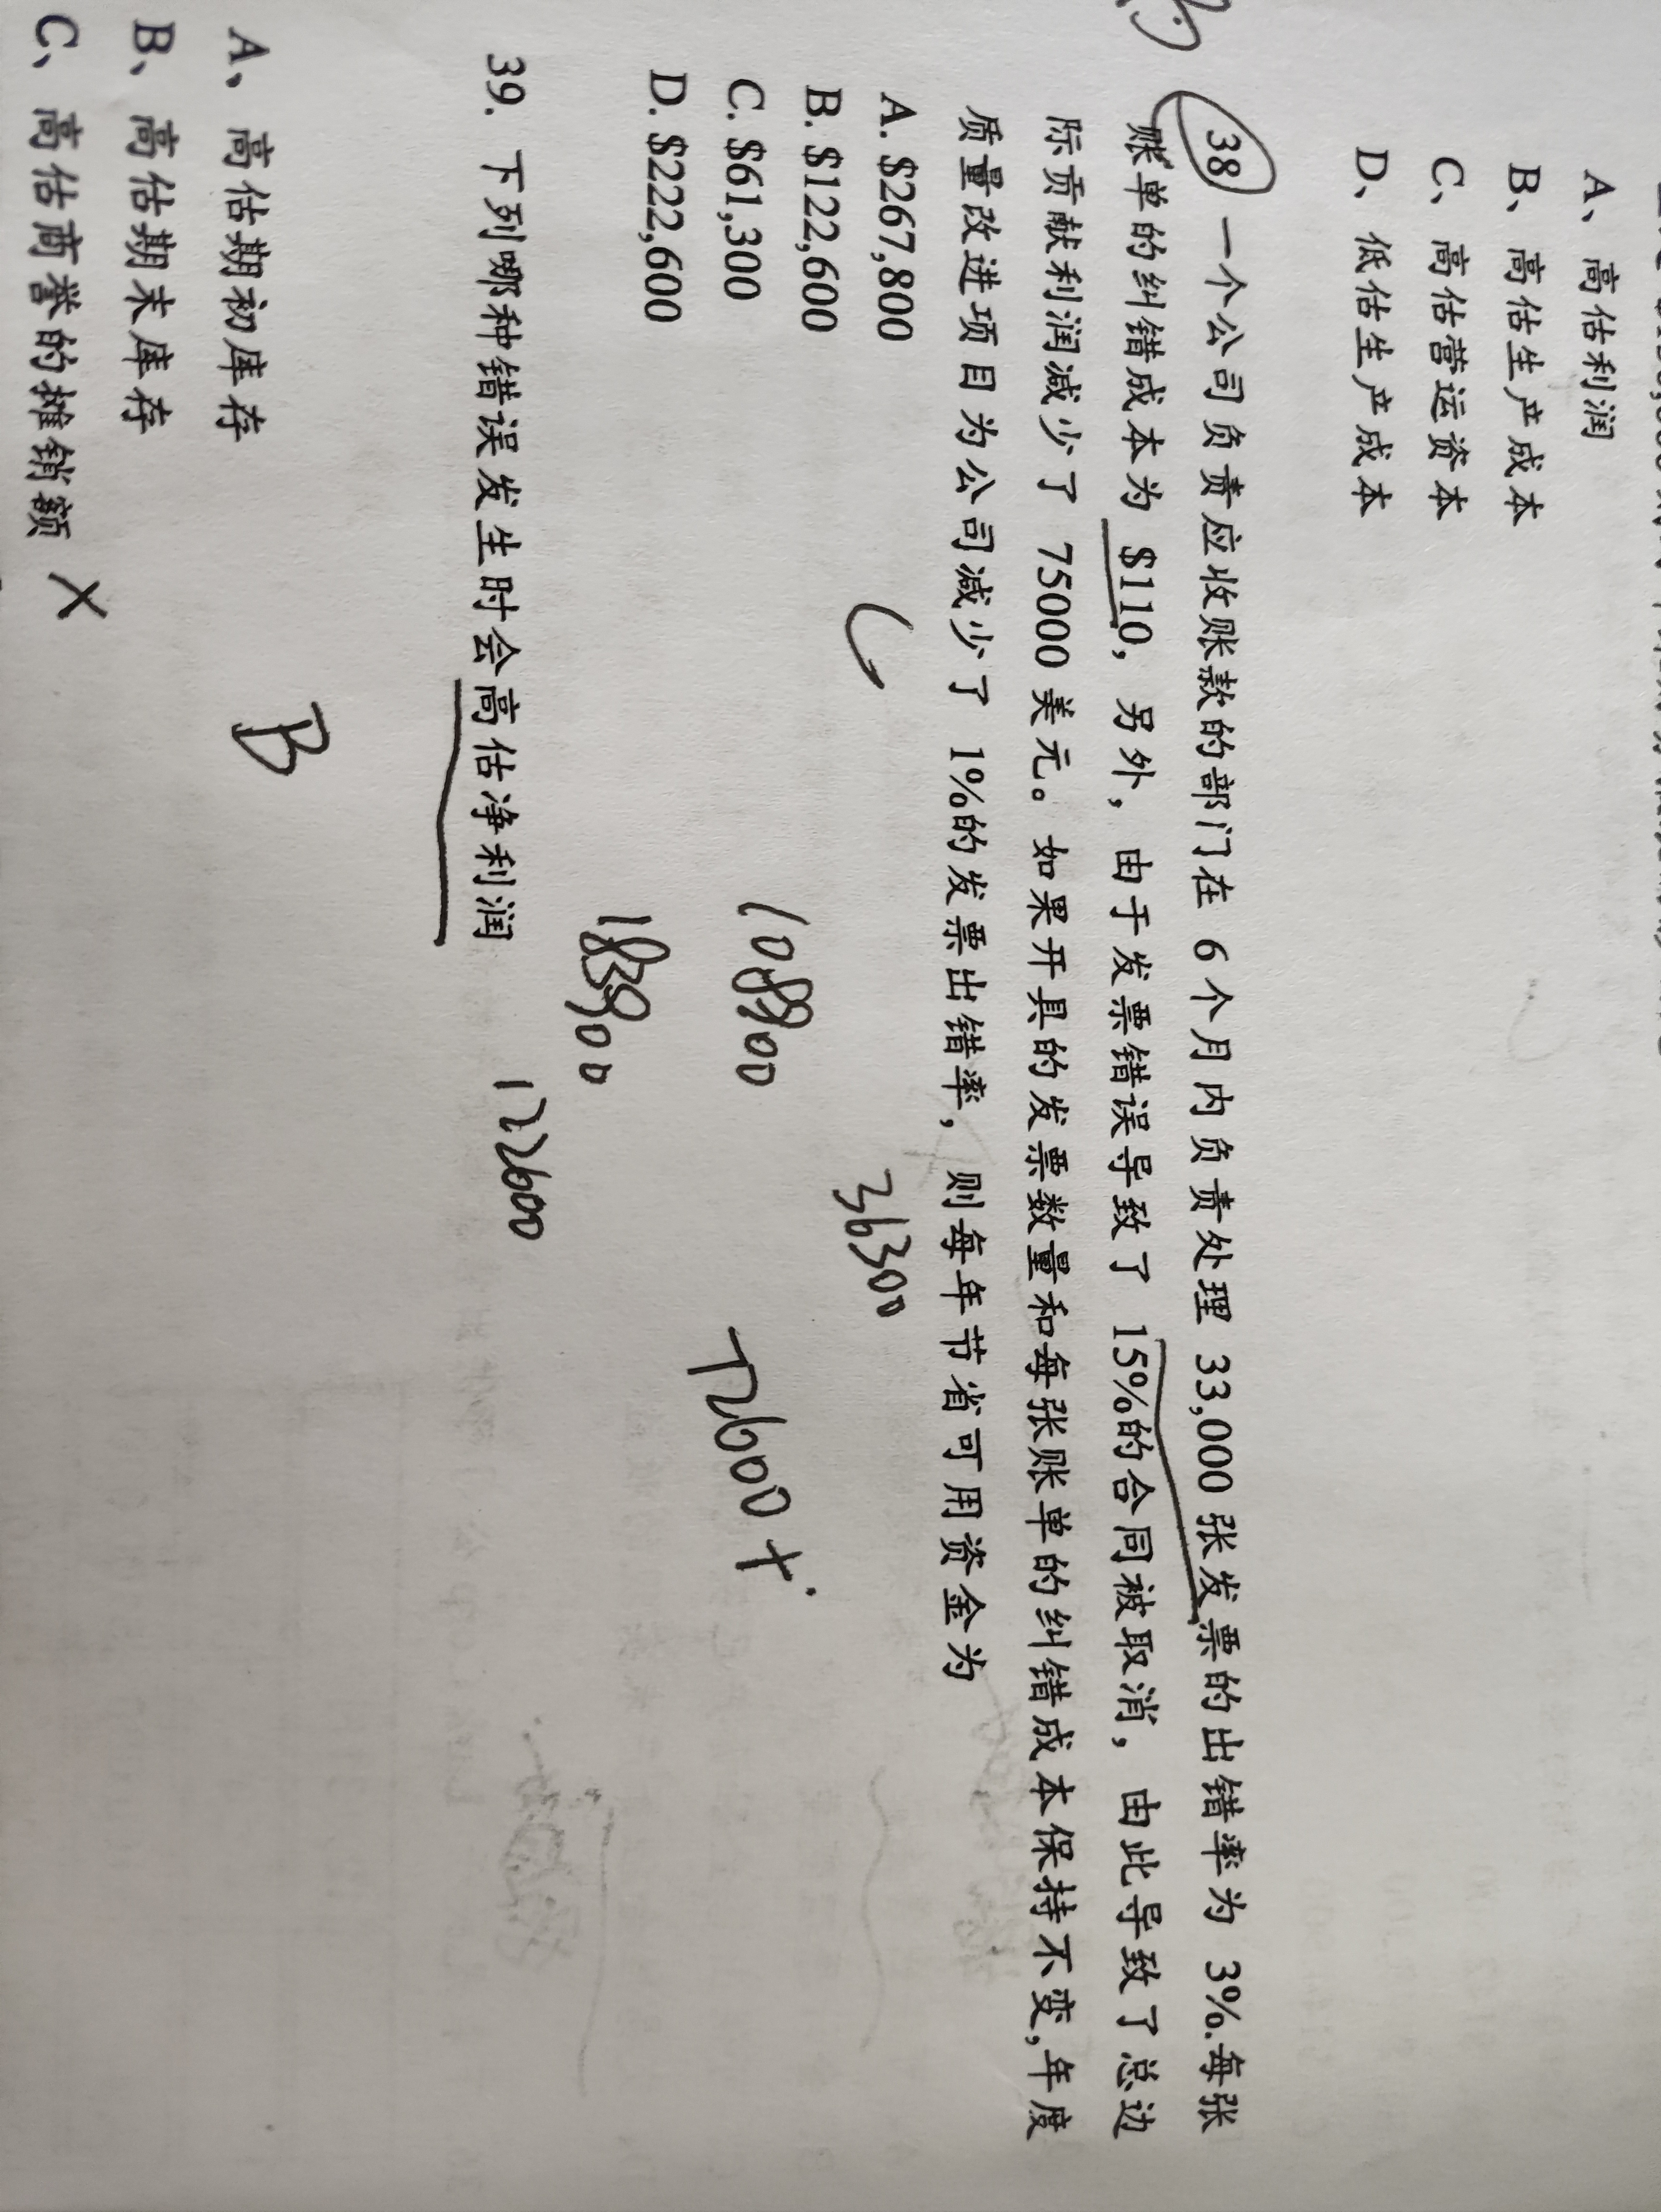 A、高估利润
B、高估生产成本
C、高估营运资本
D、低估生产成本
38 一个公司负责应收账款的部门在 6 个月内负责处理 33,000 张发票的出错率为 3%.每张
账单的纠错成本为 $110，另外，由于发票错误导致了 15%的合同被取消，由此导致了总边
际贡献利润减少了 75000 美元。如果开具的发票数量和每张账单的纠错成本保持不变,年度
质量改进项目为公司减少了 1%的发票出错率，则每年节省可用资金为
A. $267,800
B. $122,600
C. $61,300
D. $222,600
C
36300
108900
72600 +
183900
122600
39. 下列哪种错误发生时会高估净利润
A、高估期初库存
B、高估期末库存
C、高估商誉的摊销额 X
B